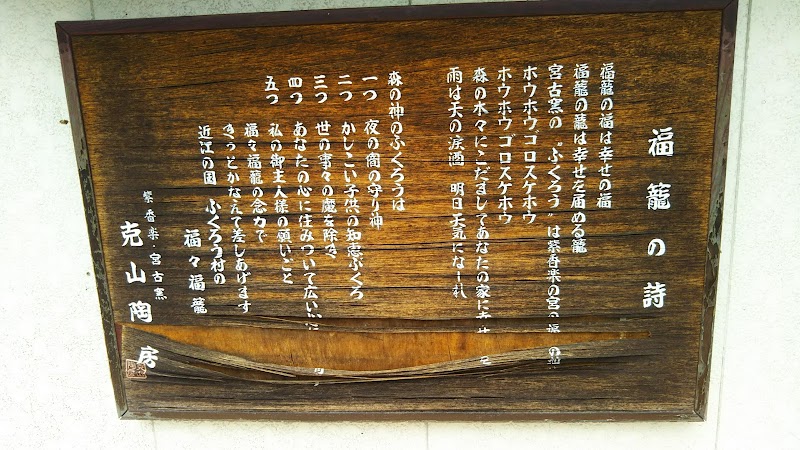 福籠の詩
福籠の福は幸せの福
福籠の籠は幸せを届める籠
宮古窯の〝ふくろう〟は紫香楽の宮の福
ホウホウゴロスケホウ
ホウホウゴロスケホウ
森の木々にこだましてあなたの家に幸せ
雨は天の涙酒 明日天気になーれ
森の神のふくろうは
一つ 夜の闇の守り神
二つ かしこい子供の知恵ぶくろ
三つ 世の事々の魔を除き
四つ あなたの心に住みついて広い
五つ 私の御主人様の願いごと
福々福籠の念力で
きっとかなえて差しあげます
近江の国 ふくろう村の
福々福籠
紫香楽・宮古窯
克山陶房